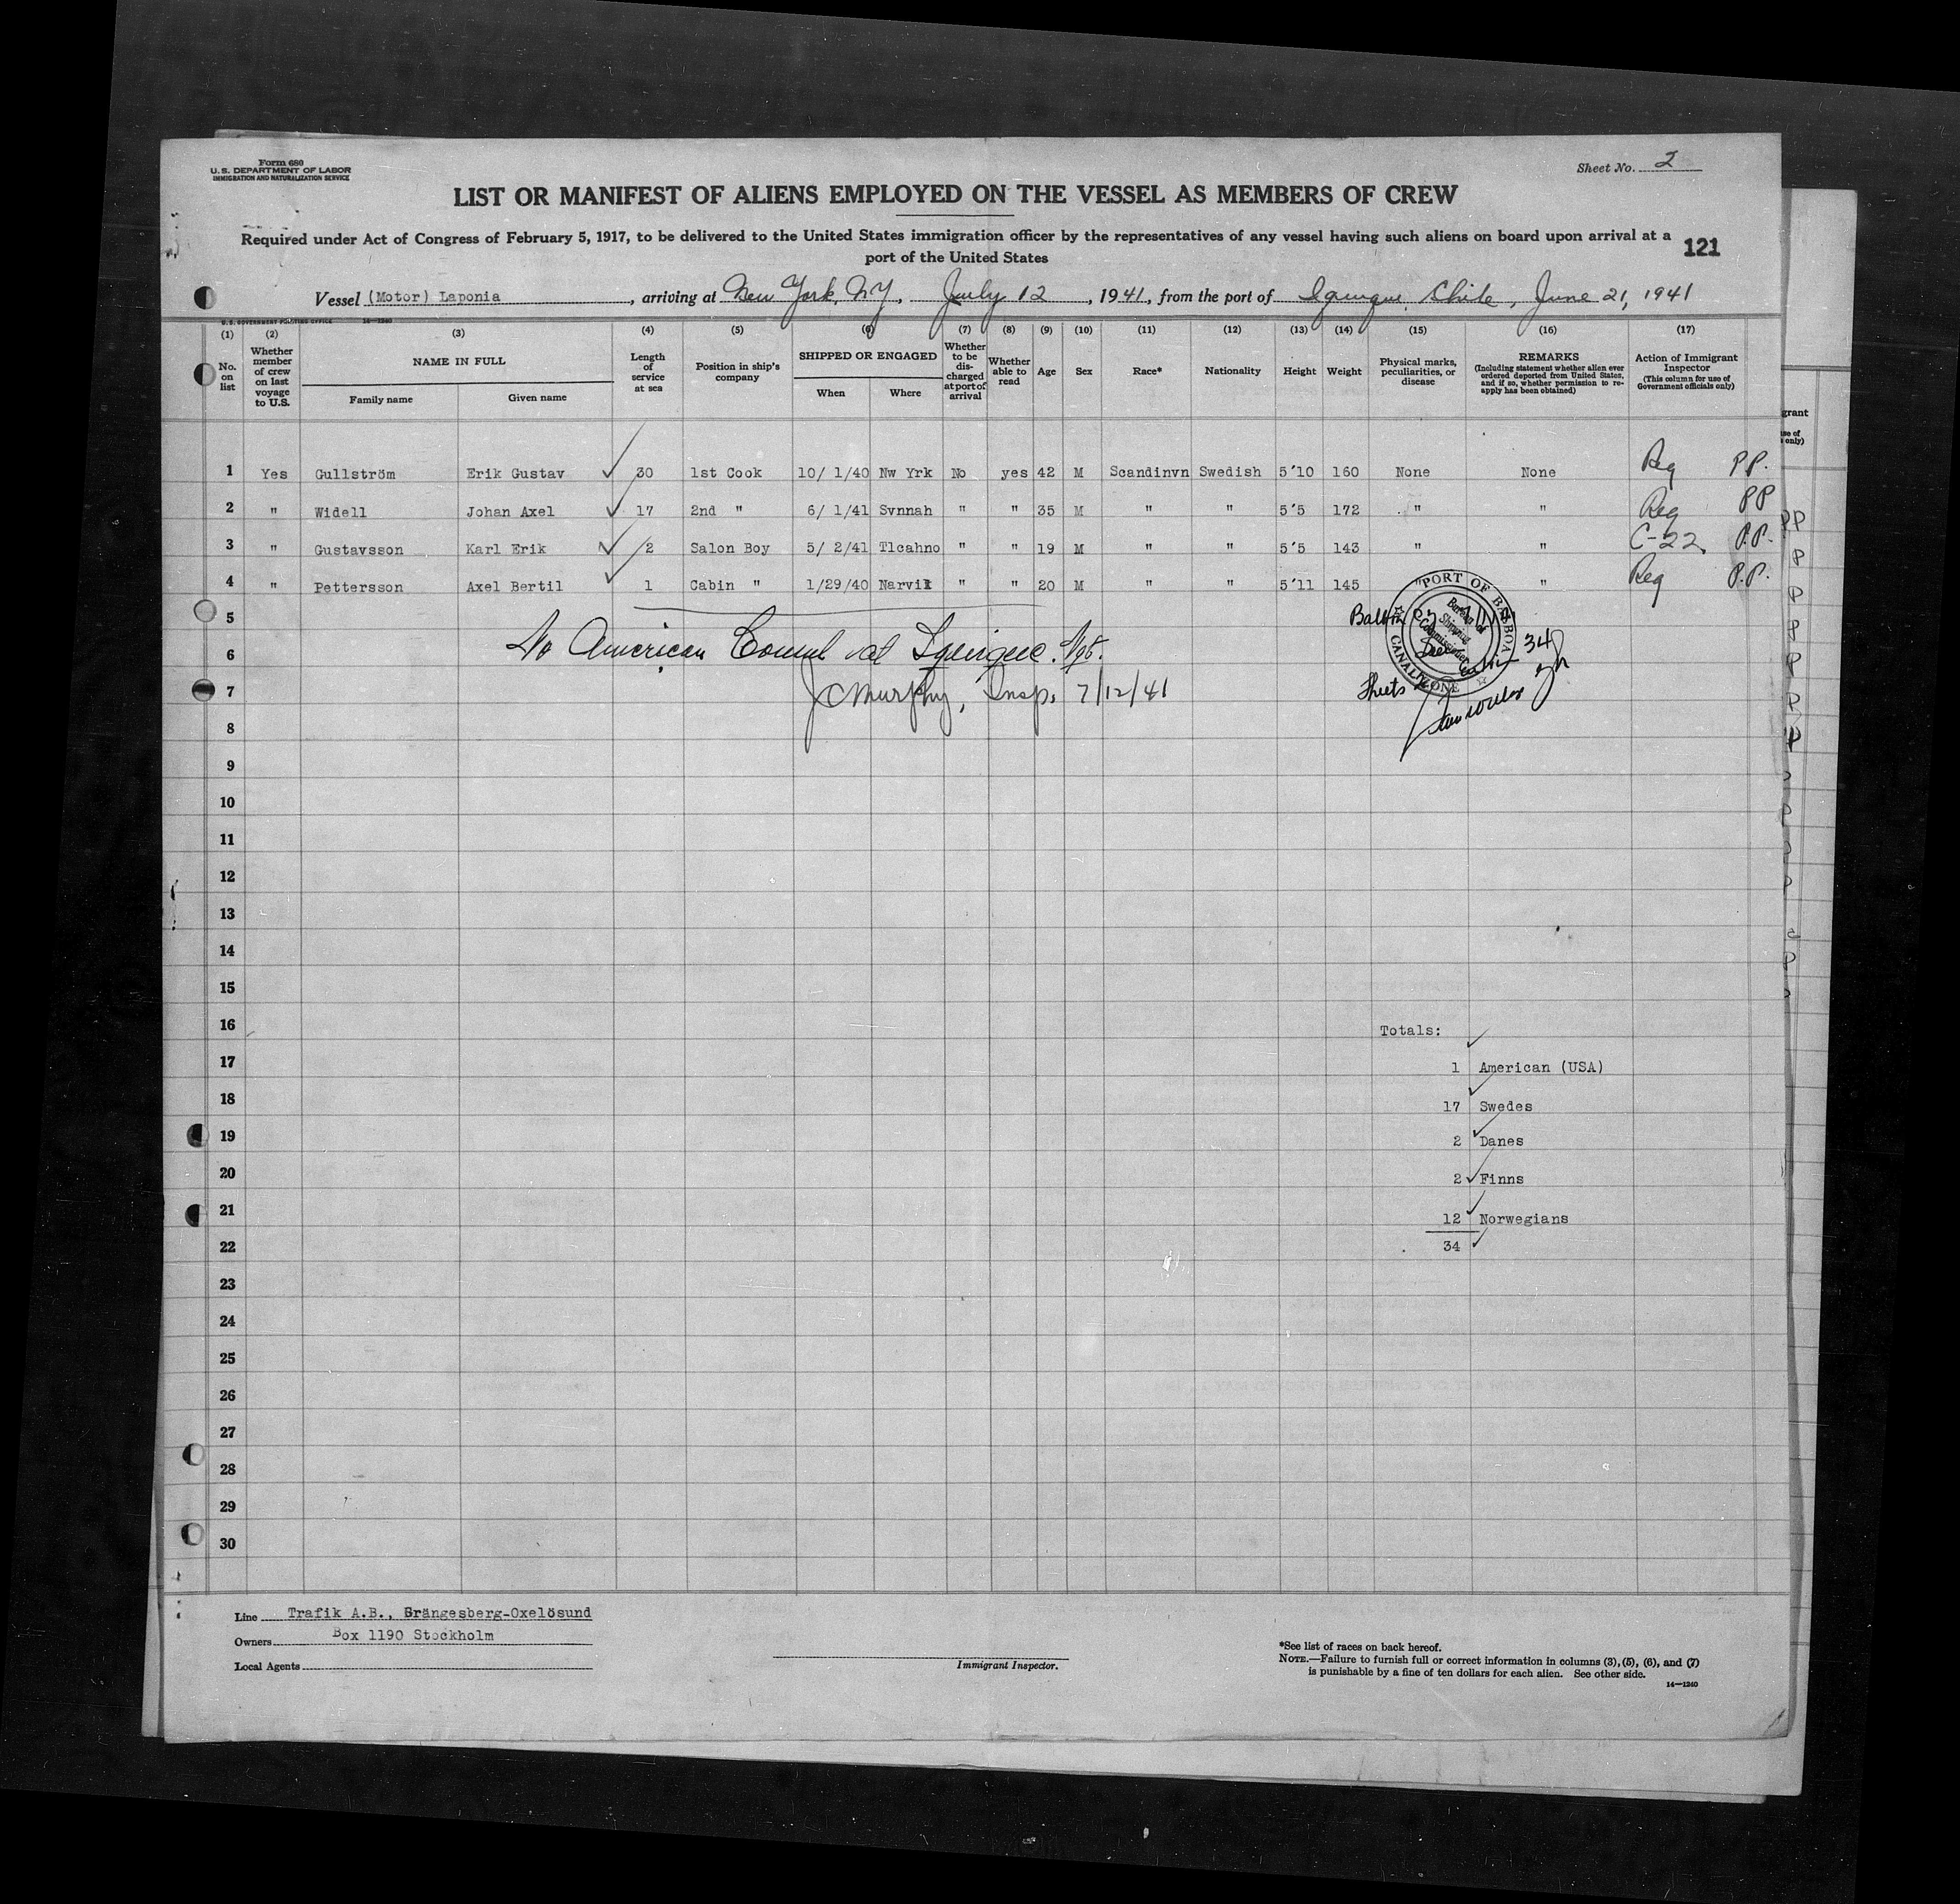 Form 680
U.S. DEPARTMENT OF LABOR
IMMIGRATION AND NATURALIZATION SERVICE
Sheet No. 2
LIST OR MANIFEST OF ALIENS EMPLOYED ON THE VESSEL AS MEMBERS OF CREW
Required under Act of Congress of February 5, 1917, to be delivered to the United States immigration officer by the representatives of any vessel having such aliens on board upon arrival at a
port of the United States
121
Vessel (Motor) Laponia, arriving at New York, NY, July 12, 1941, from the port of Iquique, Chile, June 21, 1941
U.S. GOVERNMENT PRINTING OFFICE 14—1240
(1) (2) (3) (4) (5) (6) (7) (8) (9) (10) (11) (12) (13) (14) (15) (16) (17)
No. on list
Whether member of crew on last voyage to U.S.
NAME IN FULL
Family name
Given name
Length of service at sea
Position in ship's company
SHIPPED OR ENGAGED
When
Where
Whether to be discharged at port of arrival
Whether able to read
Age
Sex
Race*
Nationality
Height
Weight
Physical marks, peculiarities, or disease
REMARKS
(Including statement whether alien ever ordered deported from United States, and if so, whether permission to reapply has been obtained)
Action of Immigrant Inspector
(This column for use of Government officials only)
1 Yes Gullström Erik Gustav 30 1st Cook 10/ 1/40 Nw Yrk No yes 42 M Scandinvn Swedish 5'10 160 None None Reg P.P.
2 " Widell Johan Axel 17 2nd " 6/ 1/41 Svnnah " " 35 M " " 5'5 172 " " Reg PP
3 " Gustavsson Karl Erik 2 Salon Boy 5/ 2/41 Tlcahno " " 19 M " " 5'5 143 " " C-22 P.P.
4 " Pettersson Axel Bertil 1 Cabin " 1/29/40 Narvik " " 20 M " " 5'11 145 " " Reg P.P.
5
6
7
8
9
10
11
12
13
14
15
16
17
18
19
20
21
22
23
24
25
26
27
28
29
30
No American Consul at Iquique.
JC Murphy, Insp. 7/12/41
PORT OF BALBOA
CANAL ZONE
Bureau of Shipping Commissioner
34
Sheets
Totals:
1 American (USA)
17 Swedes
2 Danes
2 Finns
12 Norwegians
34
Line Trafik A.B., Grängesberg-Oxelösund
Owners Box 1190 Stockholm
Local Agents
Immigrant Inspector.
*See list of races on back hereof.
NOTE.—Failure to furnish full or correct information in columns (3), (5), (6), and (7)
is punishable by a fine of ten dollars for each alien. See other side.
14—1240